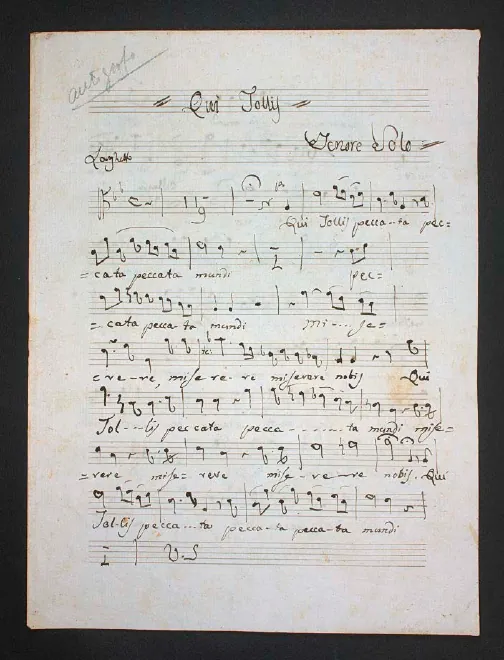 autografo
= Qui Tollis =
Tenore Solo =
Larghetto
Qui Tollis pecca--ta pec=
=cata peccata mundi pec=
=cata pecca-ta mundi mi---se=
e-re-re, mise-re-re miserere nobis Qui
Tol---lis peccata pecca--------ta mundi mise=
=rere mise=rere mise-re-re nobis. Qui
Tol-lis pecca---ta pecca-ta pecca-ta mundi
V. S